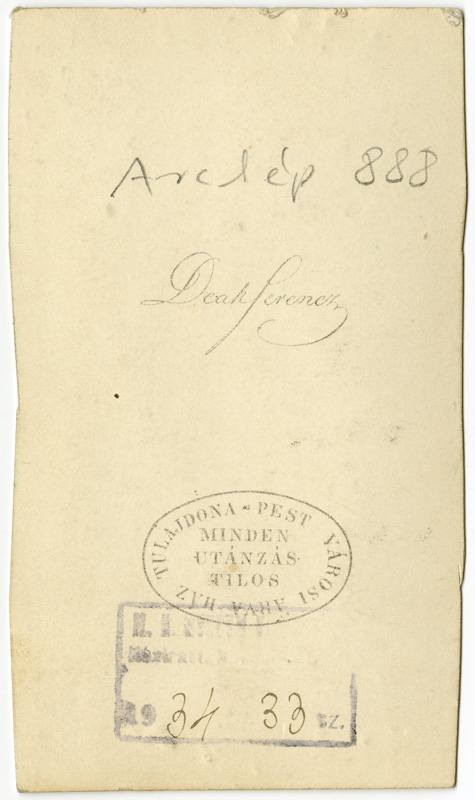 Arckép 888
Deák Ferencz
TULAJDONA PEST VÁROSI ÁRVA HÁZ
MINDEN
UTÁNZÁS
TILOS
1934 33 sz.